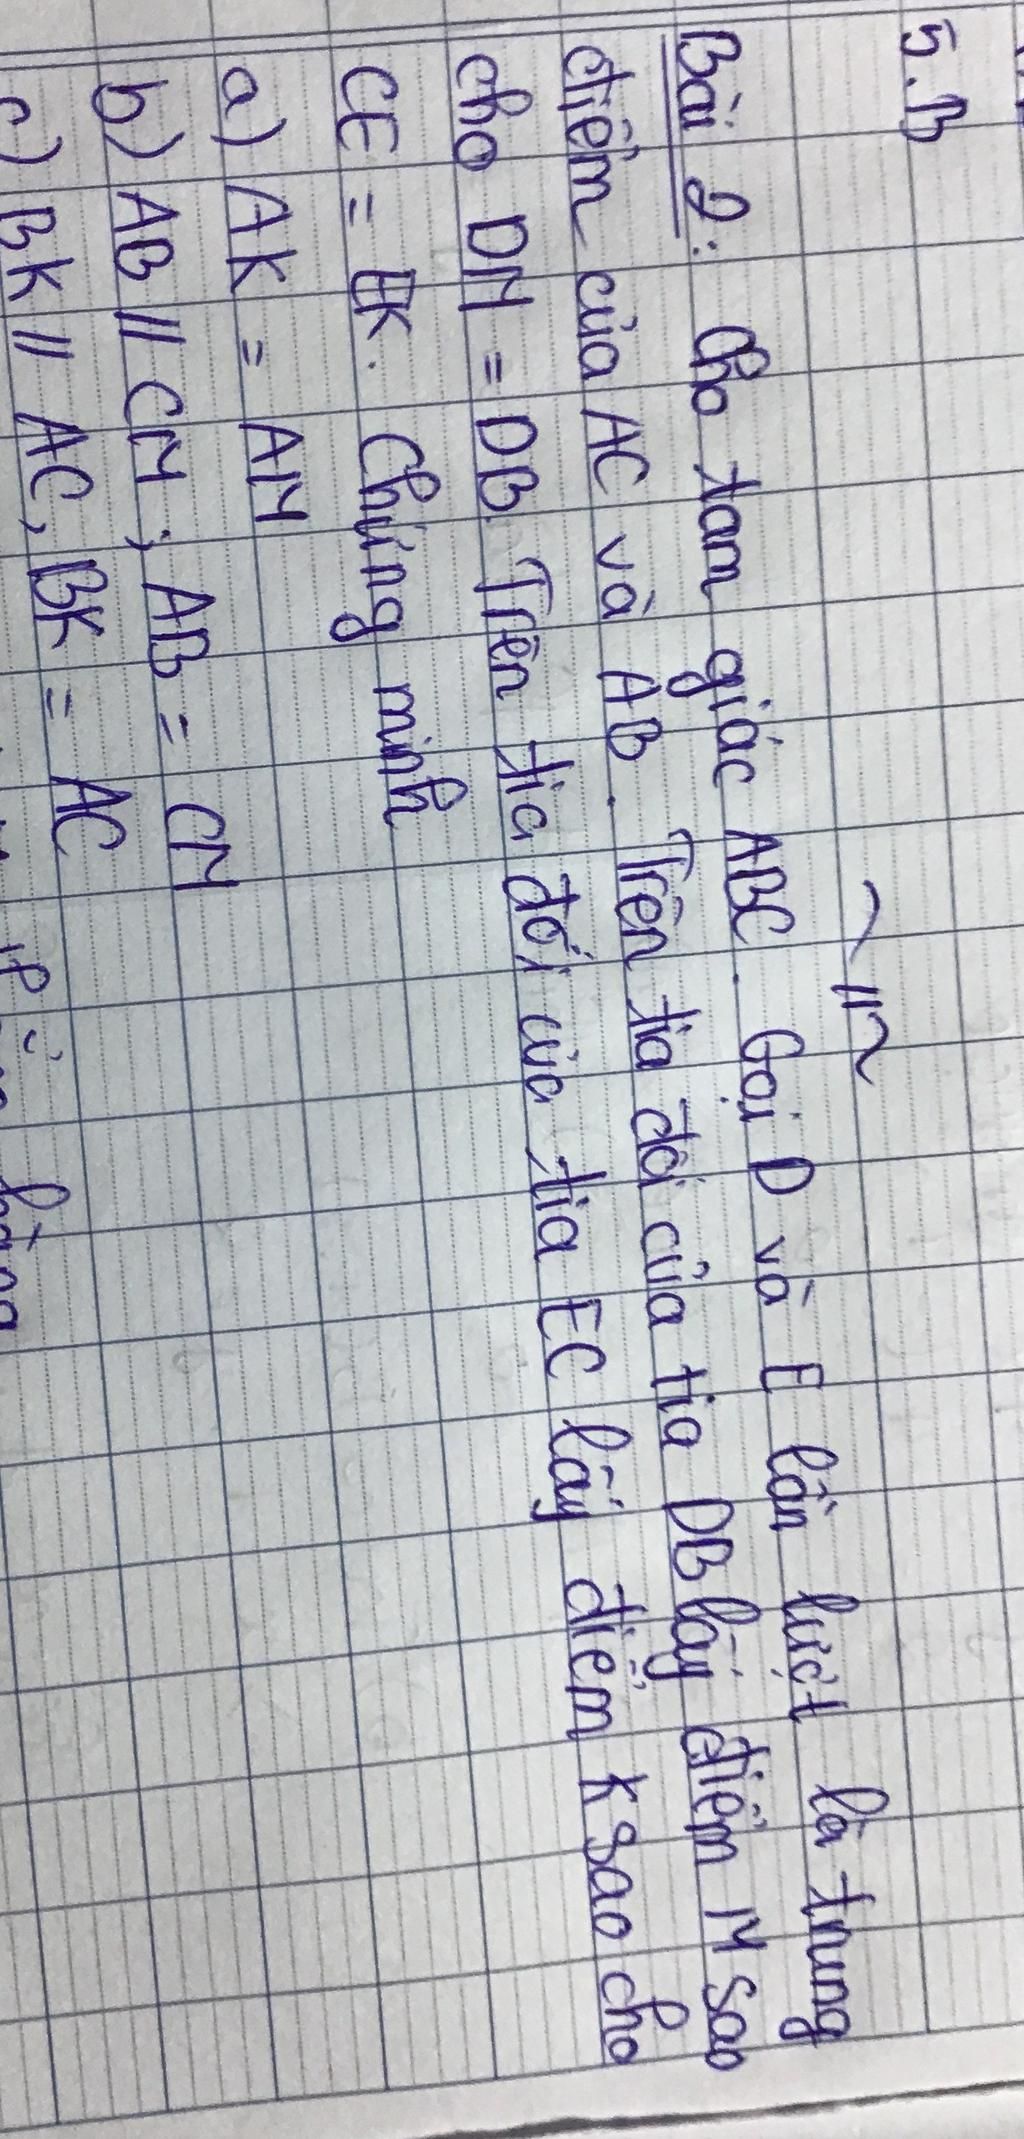 5.B
Bài 2: Cho tam giác ABC. Gọi D và E lần lượt là trung
điểm của AC và AB. Trên tia đối của tia DB lấy điểm M sao
cho DM = DB. Trên tia đối của tia EC lấy điểm K sao cho
CE = EK. Chứng minh
a) AK = AM
b) AB // CM; AB = CM
c) BK // AC, BK = AC
hàng